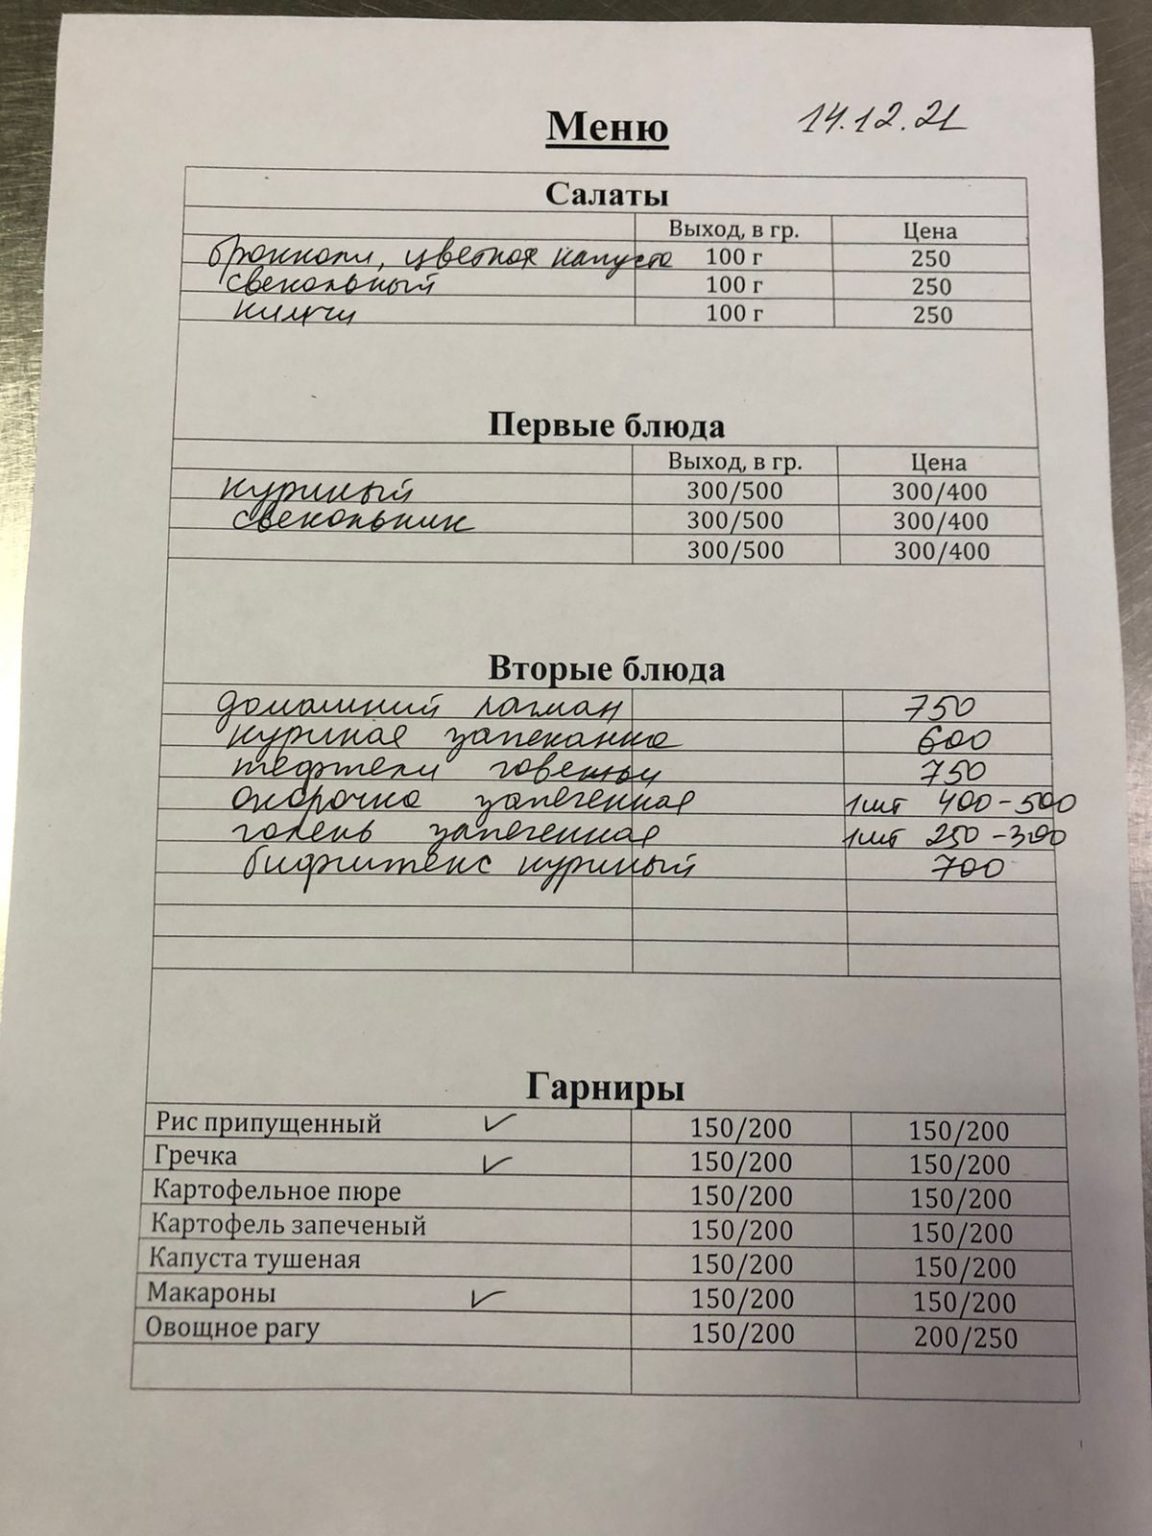 Меню 14.12.21
Салаты
Выход, в гр. Цена
брокколи, цветная капуста 100 г 250
свекольный 100 г 250
кимчи 100 г 250
Первые блюда
Выход, в гр. Цена
куриный 300/500 300/400
свекольник 300/500 300/400
300/500 300/400
Вторые блюда
домашний лагман 750
куриная запеканка 600
тефтели говяжьи 750
окорочка запеченная 1шт 400-500
голень запеченная 1шт 250-300
бифштекс куриный 700
Гарниры
Рис припущенный ✓ 150/200 150/200
Гречка ✓ 150/200 150/200
Картофельное пюре 150/200 150/200
Картофель запеченый 150/200 150/200
Капуста тушеная 150/200 150/200
Макароны ✓ 150/200 150/200
Овощное рагу 150/200 200/250